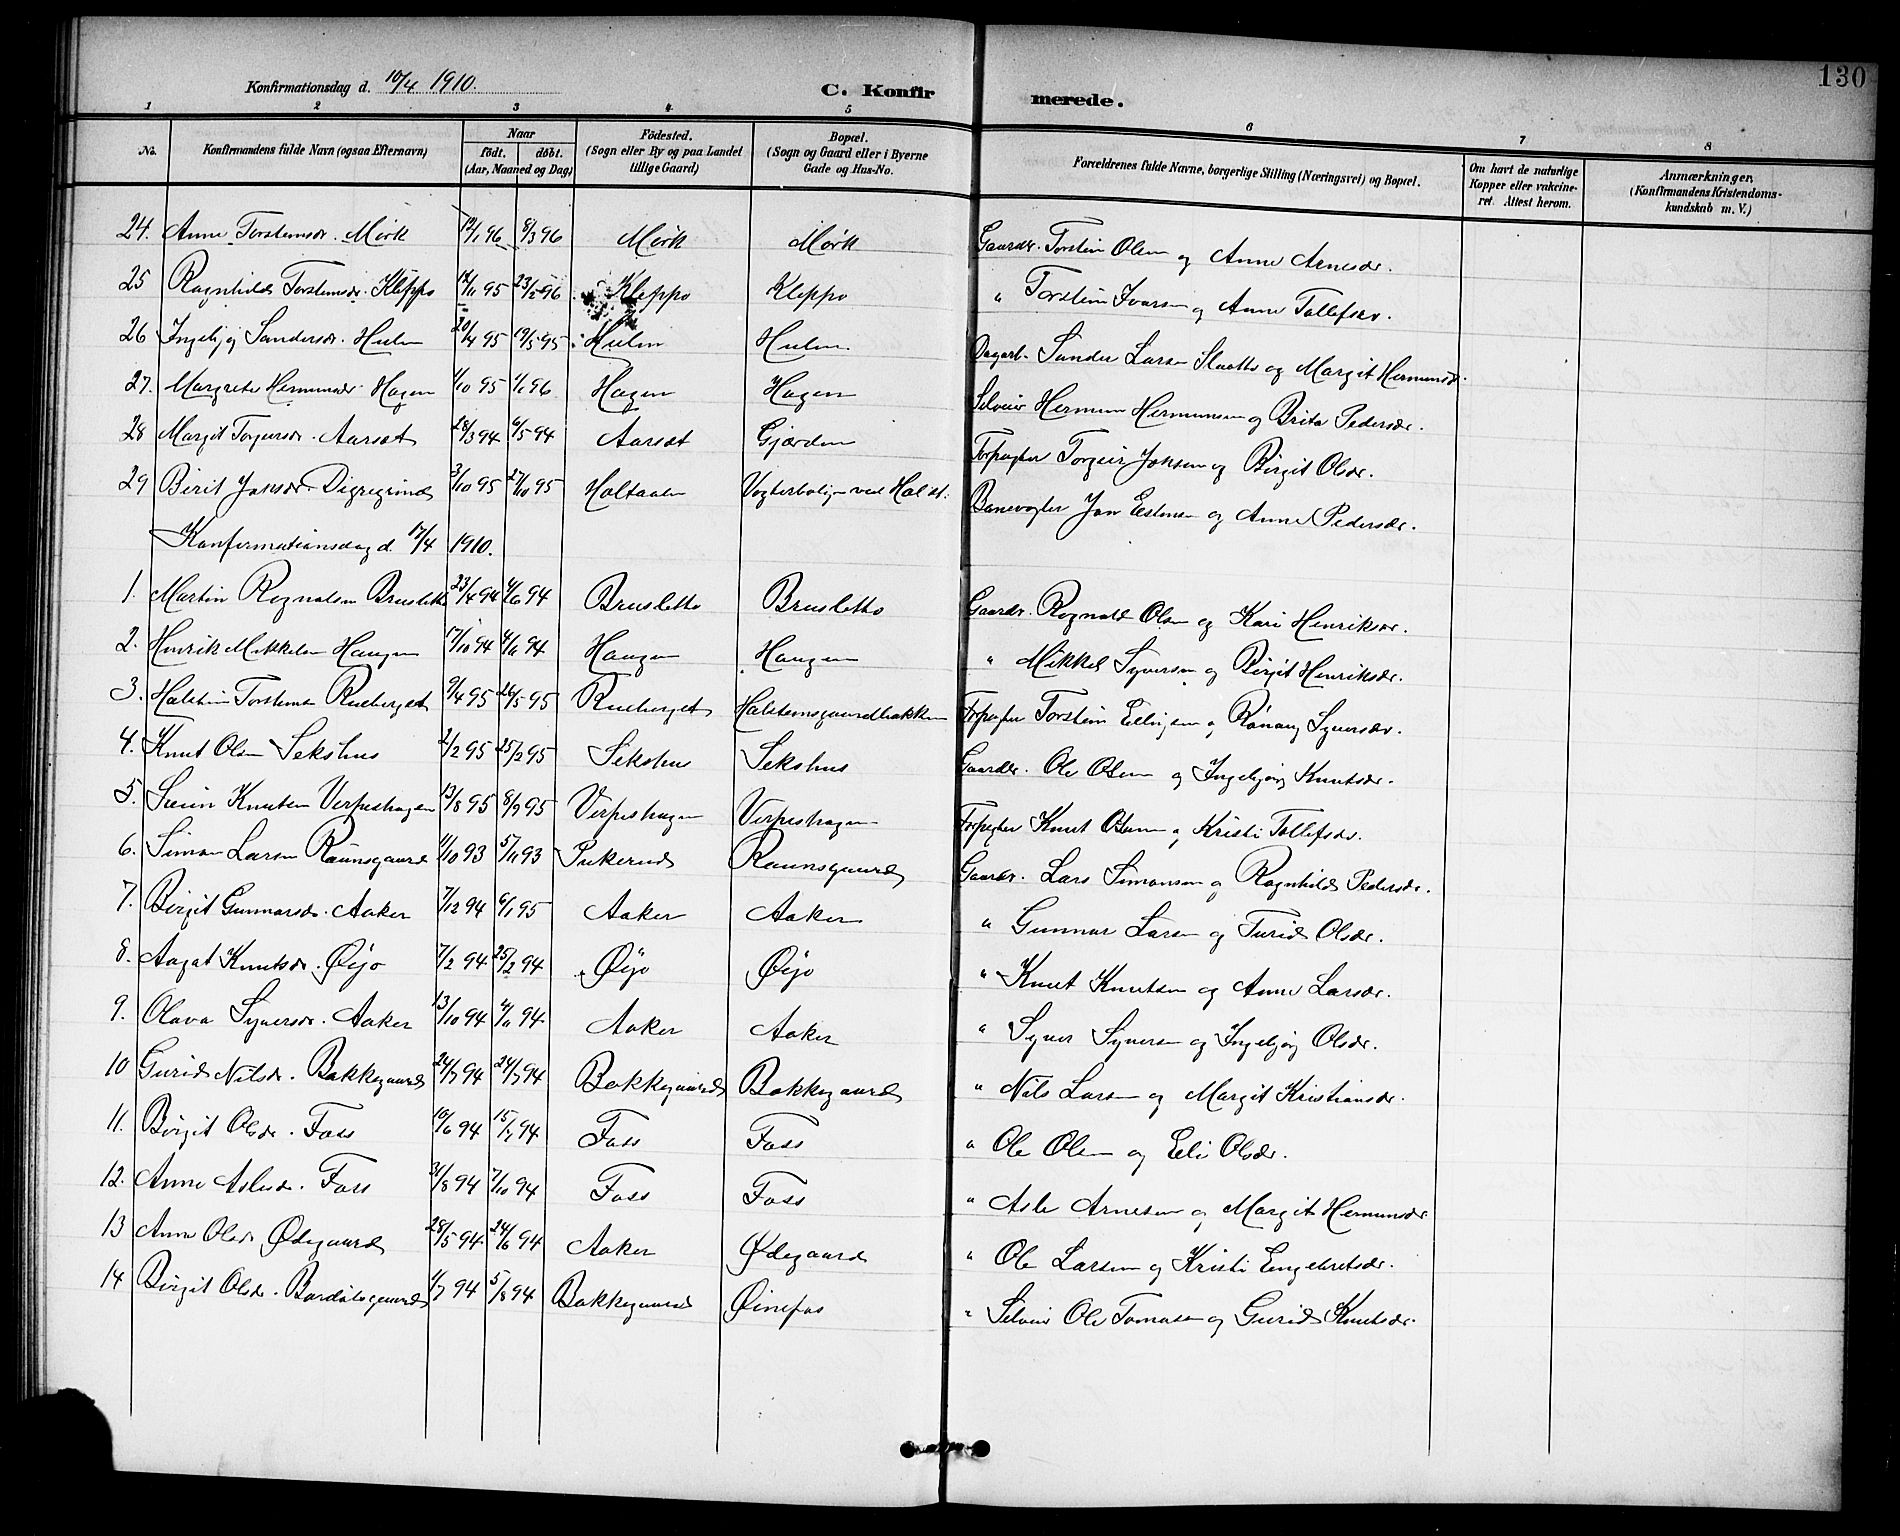 130
Konfirmationsdag d. 10/4 1910.
C. Konfirmerede.
1 2 3 4 5 6 7 8
No.
Konfirmandens fulde Navn (ogsaa Efternavn)
Naar
født. døbt.
(Aar, Maaned og Dag)
Födested.
(Sogn eller By og paa Landet
tillige Gaard)
Bopæl.
(Sogn og Gaard eller i Byerne
Gade og Hus-No.
Forældrenes fulde Navne, borgerlige Stilling (Næringsvei) og Bopæl.
Om havt de naturlige
Kopper eller vakcine-
ret. Attest herom.
Anmærkninger.
(Konfirmandens Kristendoms-
kundskab m. V.)
24. Anne Torsteinsdr. Mörk 12/1 96 8/3 96 Mörk Mörk Gaardbr. Torstein Olsen og Anne Arnesdr.
25 Ragnhild Torsteinsdr. Kleppo 14/11 95 23/2 96 Kleppo Kleppo " Torstein Ivarsen og Anne Tollefsdr.
26 Ingebjøg Sandersdr. Hulm 20/4 95 19/5 95 Hulm Hulm. Dagarb. Sander Larsen Slaatto og Margit Hermunsdr.
27. Margrete Hermunsdr. Hagen 1/10 95 1/1 96 Hagen Hagen Selveier Hermun Hermunsen og Brita Pedersdr.
28 Margit Torgersdr. Aarset 28/3 94 6/5 94 Aarset Gjærden Forpagter Torgeir Jonsen og Birgit Olsdr.
29 Birit Jonsdr. Digregrind 3/10 95 27/10 95 Holtaalen Vogterbolig ved Hol st. Banevogter Jon Estensen og Anne Pedersdr.
Konfirmationsdag d. 17/4 1910.
1. Martin Rognalsen Brusletto 23/4 94 4/6 94 Brusletto Brusletto Gaardbr. Rognald Olsen og Kari Henriksdr.
2. Henrik Mikkelsen Haugen 17/10 94 4/11 94 Haugen Haugen " Mikkel Syversen og Birgit Henriksdr.
3. Halstein Torsteinsen Rueberget 9/4 95 26/5 95 Rueberget Halsteinsgaardbakken Forpagter Torstein Ellingsen og Rönaug Syversdr.
4. Knut Olsen Sekshus 2/2 95 25/2 95 Sekshus Sekshus Gaardbr. Ole Olsen og Ingebjørg Knutsdr.
5. Svein Knutsen Verpeshagen 13/8 95 8/9 95 Verpeshagen Verpeshagen Forpagter Knut Olsen og Kristi Tollefsdr.
6. Simon Larsen Raunsgaard 11/10 93 5/11 93 Pukerud Raunsgaard Gaardbr. Lars Simonsen og Ragnhild Pedersdr.
7. Birgit Gunnarsdr. Aaker 7/12 94 6/1 95 Aaker Aaker " Gunnar Larsen og Turid Olsdr.
8. Aagat Knutsdr. Øijo 7/2 94 25/2 94 Øijo Øijo " Knut Knutsen og Anne Larsdr.
9. Olava Syversdr. Aaker 13/10 94 4/11 94 Aaker Aaker " Syver Syversen og Ingebjørg Olsdr.
10 Gurid Nilsdr. Bakkegaard 24/7 94 Bakkegaard Bakkegaard " Nils Larsen og Margit Kristiansdr.
11. Birgit Olsdr. Foss 10/6 94 15/7 94 Foss Foss " Ole Olsen og Eli Olsdr.
12. Anne Aslesdr. Foss 31/8 94 7/10 94 Foss Foss " Asle Arnesen og Margit Hermunsdr
13 Anne Olsdr Ødegaard 28/5 94 24/6 94 Aaker Ødegaard " Ole Larsen og Kristi Engebretsdr.
14 Birgit Olsdr. Bardölsgaard 1/7 94 5/8 94 Bakkegaard Øinefos " Selveier Ole Tomasen og Gurid Knutsdr.